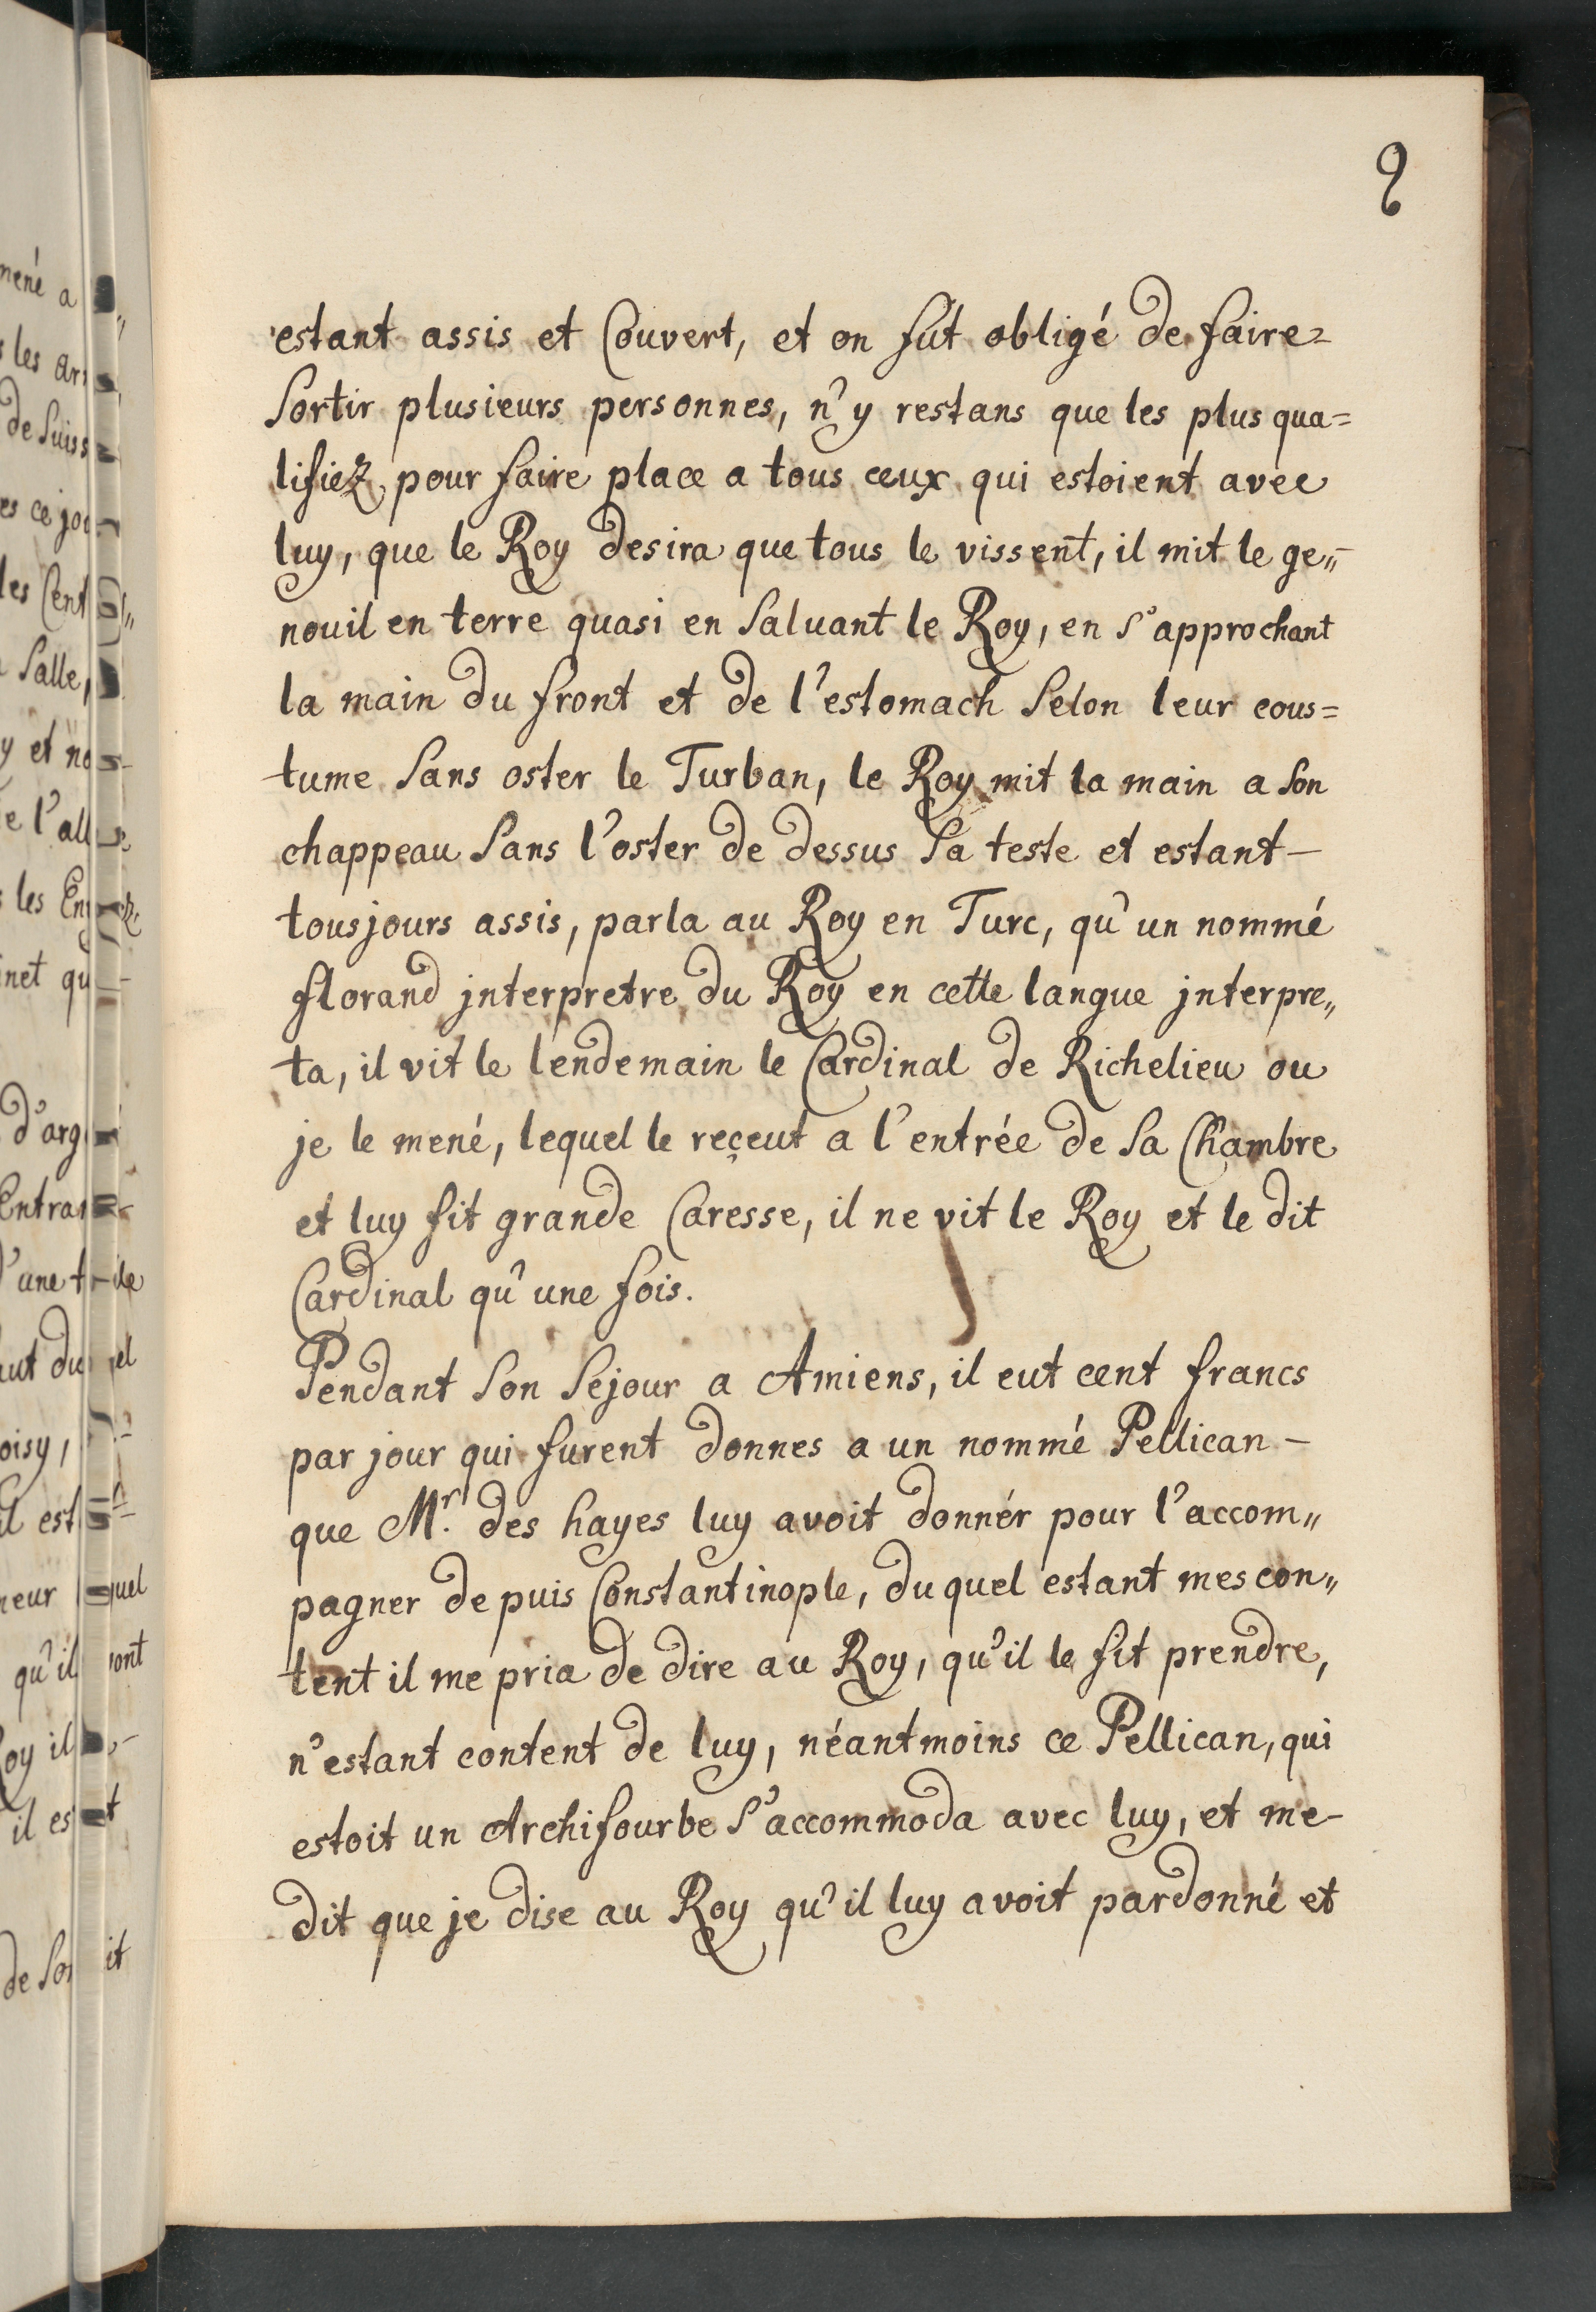 8
estant assis et Couvert, et on fut obligé de faire=
Sortir plusieurs personnes, n'y restans que les plus qua=
lifiez pour faire place a tous ceux qui estoient avec
luy, que le Roy desira que tous le vissent, il mit le ge„
nouil en terre quasi en Saluant le Roy, en S'approchant
la main du front et de l'estomach Selon leur cous=
tume Sans oster le Turban, le Roy mit la main a Son
chappeau Sans l'oster de dessus Sa teste et estant—
tousjours assis, parla au Roy en Turc, qu'un nommé
florand jnterpretre du Roy en cette langue jnterpre„
ta, il vit le lendemain le Cardinal de Richelieu ou
je le mené, lequel le reçeut a l'entrée de Sa Chambre
et luy fit grande Caresse, il ne vit le Roy et le dit
Cardinal qu'une fois.
Pendant Son Sejour a Amiens, il eut cent francs
par jour qui furent donnes a un nommé Pellican—
que Mr. des hayes luy avoit donnér pour l'accom„
pagner depuis Constantinople, duquel estant mescon„
tent il me pria de dire au Roy, qu'il le fit prendre,
n'estant content de luy, néantmoins ce Pellican, qui
estoit un Archifourbe S'accommoda avec luy, et me-
dit que je dise au Roy qu'il luy avoit pardonné et